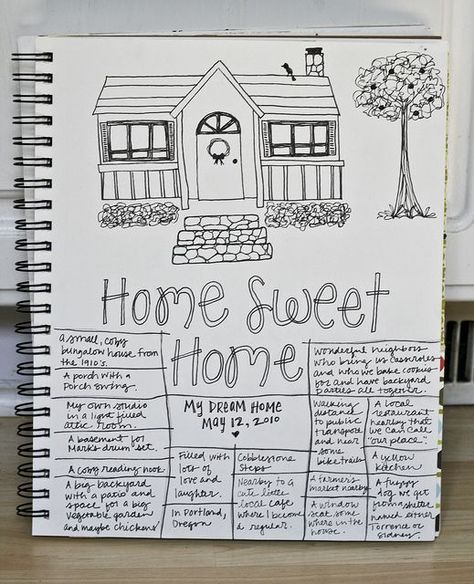 Home Sweet
Home
My Dream Home
May 12, 2010
a small, cozy
bungalow house from
the 1910's.
A porch with a
Porch swing.
My own studio
in a light filled
attic room.
A basement for
Mark's drum set.
A cozy reading nook.
A big backyard
with a patio and
space for a big
vegetable garden
and maybe chickens
Filled with
lots of
love and
laughter.
In Portland,
Oregon
Cobblestone
Steps
Nearby to a
cute little
local cafe
where I become
a regular.
Wonderful neighbors
who bring us casseroles
and who we bake cookies
for and have backyard
parties all together.
Walking
distance
to public
transport
and near
some
bike trails
A local
restaurant
nearby that
we can call
"our place".
A farmer's
market nearby
A window
seat some
where in the
house.
A yellow
kitchen
A puppy
dog we get
from shelter
named either
Torrence or
Sidney.